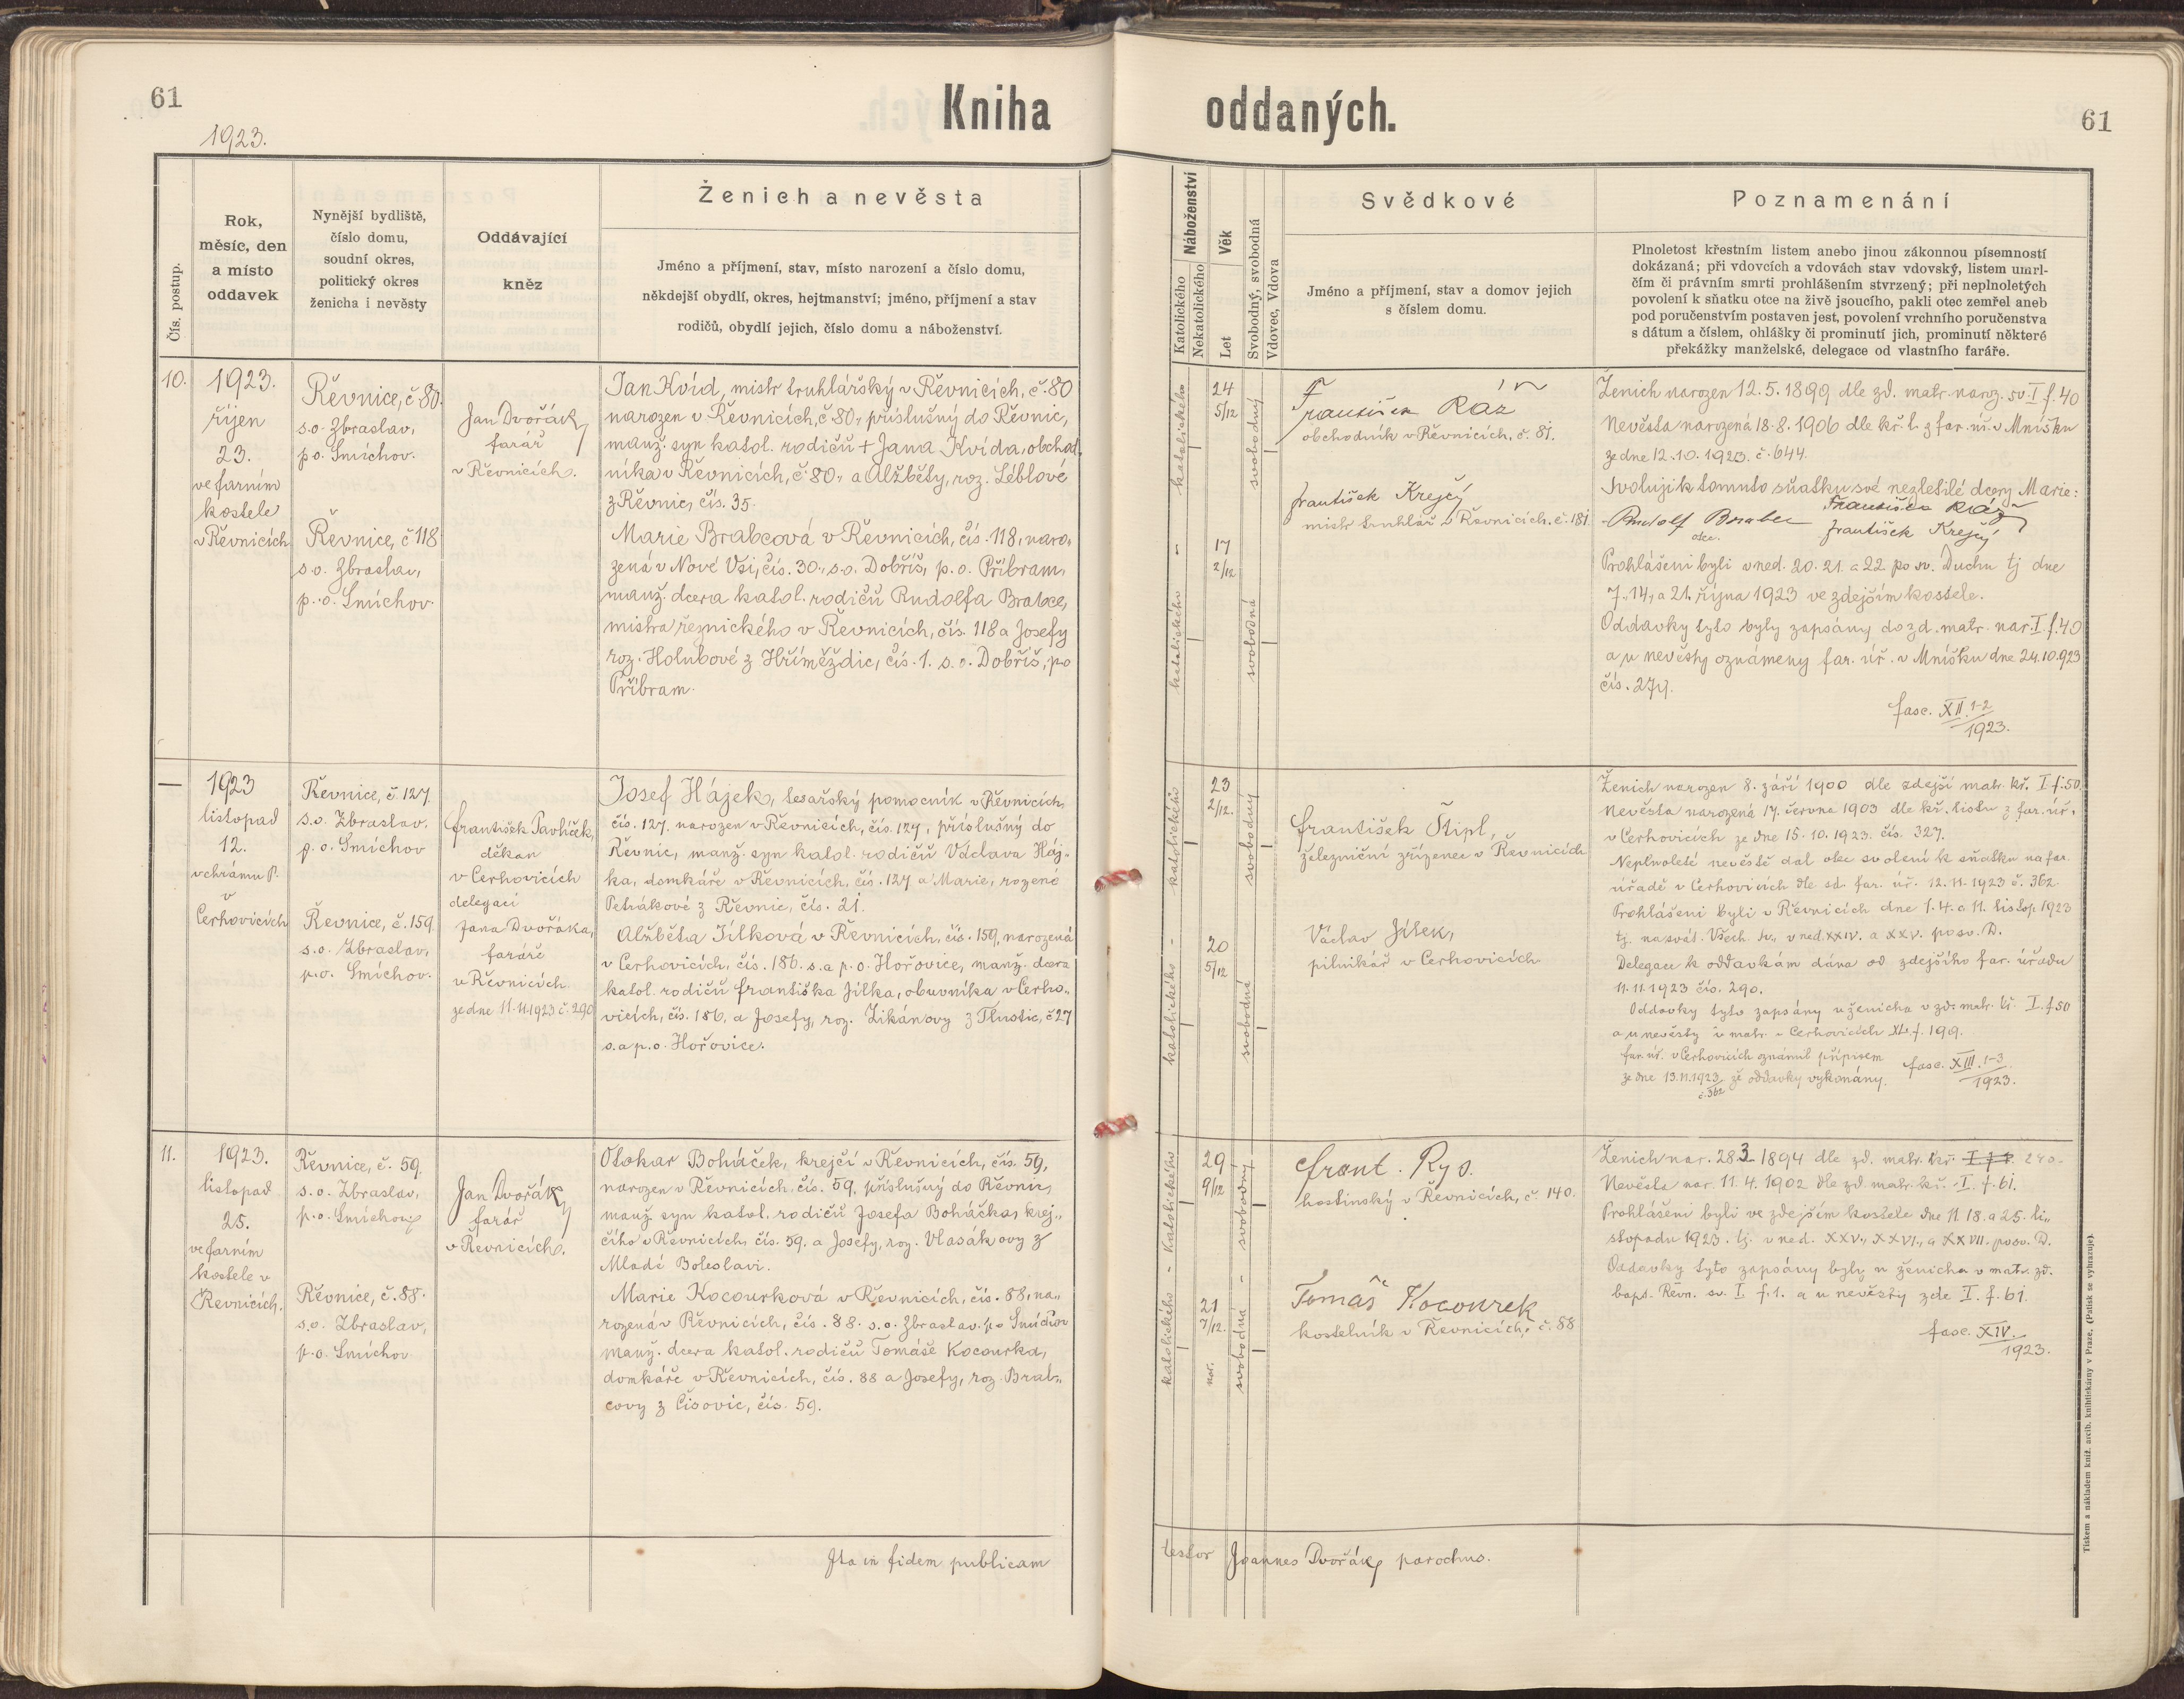 61
1923.
Kniha oddaných.
61
Čís. postup.
Rok,
měsíc, den
a místo
oddavek
Nynější bydliště,
číslo domu,
soudní okres,
politický okres
ženicha i nevěsty
Oddávající
kněz
Ženich a nevěsta
Jméno a příjmení, stav, místo narození a číslo domu,
někdejší obydlí, okres, hejtmanství; jméno, příjmení a stav
rodičů, obydlí jejich, číslo domu a náboženství.
Náboženství
Katolického
Nekatolického
Věk
Let
Svobodný, svobodná
Vdovec, Vdova
Svědkové
Jméno a příjmení, stav a domov jejich
s číslem domu.
Poznamenání
Plnoletost křestním listem anebo jinou zákonnou písemností
dokázaná; při vdovcích a vdovách stav vdovský, listem umrl-
čím či právním smrti prohlášením stvrzený; při neplnoletých
povolení k sňatku otce na živě jsoucího, pakli otec zemřel aneb
pod poručenstvím postaven jest, povolení vrchního poručenstva
s dátum a číslem, ohlášky či prominutí jich, prominutí některé
překážky manželské, delegace od vlastního faráře.
10.
1923.
říjen
23.
ve farním
kostele
v Řevnicích
Řevnice, č 80.
s.o. Zbraslav,
p.o. Smíchov.
Řevnice, č 118
s.o. Zbraslav,
p.o. Smíchov.
Jan Dvořák,
farář
v Řevnicích.
Jan Kvíd, mistr truhlářský v Řevnicích, č. 80
narozen v Řevnicích, č 80, příslušný do Řevnic,
manž. syn katol. rodičů + Jana Kvída, obchod,
níka v Řevnicích, č 80, a Alžběty, roz. Léblové
z Řevnic, čís. 35.
Marie Brabcová v Řevnicích, čís. 118, naro,
zená v Nové Vsi, čís. 30, s.o. Dobříš, p.o. Příbram,
manž. dcera katol. rodičů Rudolfa Brabce,
mistra řeznického v Řevnicích, čís. 118 a Josefy
roz. Holubové z Hříměždic, čís. 1. s.o. Dobříš, po
Příbram.
katolického - katolického
24
5/12
17
2/12
svobodný
svobodná
František Ráž
obchodník v Řevnicích, č. 81.
František Krejčý
mistr truhlář v Řevnicích. č. 181
Ženich narozen 12. 5. 1899 dle zd. matr. naroz. sv. I f. 40
Nevěsta narozená 18. 8. 1906 dle kř. l. z far. úř. v Mníšku
ze dne 12. 10. 1923. č. 644.
Svoluji k tomuto sňatku své nezletilé dcery Marie:
Rudolf Brabec
otec.
František Ráž
František Krejčý
Prohlášeni byli v ned. 20. 21. a 22. po sv. Duchu tj dne
7., 14., a 21. října 1923 ve zdejším kostele.
Oddavky tyto byly zapsány do zd. matr. nar. I. f. 40
a u nevěsty oznámeny far. úř. v Mníšku dne 24. 10. 923
fasc. XII. 1-2
1923.
—
1923
listopad
12.
v chrámu P.
v
Cerhovicích
Řevnice, č. 127
s.o. Zbraslav.
p.o. Smíchov
Řevnice, č. 159.
s.o. Zbraslav,
p.o. Smíchov.
František Pavlíček,
děkan
v Cerhovicích
delegací
Jana Dvořáka,
faráře
v Řevnicích
ze dne 11. 11. 1923 č. 290
Josef Hájek, tesařský pomocník v Řevnicích,
čís. 127, narozen v Řevnicích, čís. 127, příslušný do
Řevnic, manž. syn katol. rodičů Václava Háj-
ka, domkáře v Řevnicích, čís. 127 a Marie, rozené
Petrákové z Řevnic, čís. 21.
Alžběta Jílková v Řevnicích, čís. 159, narozená
v Cerhovicích, čís. 186. s. a p.o. Hořovice, manž. dcera
katol. rodičů Františka Jílka, obuvníka v Cerho,,
vicích, čís. 186, a Josefy, roz. Zikánovy z Tlustic, č 27
s. a p.o. Hořovice.
katolického - katolického
23
2/12.
20
5/12
svobodný
svobodná
František Štipl,
železniční zřízenec v Řevnicích
Václav Jílek,
pilnikář v Cerhovicích
Ženich narozen 8. září 1900 dle zdejší matr. kř. I. f. 50.
Nevěsta narozená 17. června 1903 dle kř. listu z far. úř.
v Cerhovicích ze dne 15. 10. 1923. čís. 327.
Neplnoleté nevěstě dal otec svolení k sňatku na far.
úřadě v Cerhovicích dle sd. far. úř. 12. 11. 1923 č. 362
Prohlášeni byli v Řevnicích dne 1. 4. a 11. listop. 1923
tj. na svát. Všech Sv., v ned. XXIV. a XXV. po sv. D.
Delegace k oddavkám dána od zdejšího far. úřadu
11. 11. 1923 čís. 290.
Oddavky tyto zapsány u ženicha v zd. matr. kř. I. f 50
a u nevěsty v matr. v Cerhovicích XI. f. 199.
far. úř. v Cerhovicích oznámil přípisem
ze dne 13. 11. 1923 že oddavky vykonány.
č. 362
fasc. XIII. 1-3
1923.
11.
1923.
listopad
25.
ve farním
kostele v
Řevnicích.
Řevnice, č. 59.
s.o. Zbraslav,
p.o. Smíchov
Řevnice, č. 88.
s.o. Zbraslav,
p.o. Smíchov
Jan Dvořák
farář
v Řevnicích.
Otakar Boháček, krejčí v Řevnicích, čís. 59,
narozen v Řevnicích, čís. 59, příslušný do Řevnic,
manž. syn katol. rodičů Josefa Boháčka, krej,,
čího v Řevnicích, čís. 59. a Josefy, roz. Vlasákovy z
Mladé Boleslavi.
Marie Kocourková v Řevnicích, čís. 88, na,,
rozená v Řevnicích, čís. 88. s.o. Zbraslav. po Smíchov
manž. dcera katol. rodičů Tomáše Kocourka,
domkáře v Řevnicích, čís. 88 a Josefy, roz. Brab,,
covy z Čisovic, čís. 59.
katolického - katolického
29
9/12
21
7/12.
nar.
svobodný -
svobodná -
Frant. Rys.
hostinský v Řevnicích, č. 140.
Tomáš Kocourek
kostelník v Řevnicích, č. 88
Ženich nar. 28 3. 1894 dle zd. matr. kř.
Nevěsta nar. 11. 4. 1902 dle zd. matr. kř. I. f. 61.
Prohlášeni byli ve zdejším kostele dne 11. 18. a 25. li,,
stopadu 1923. tj. v ned. XXV., XXVI., a XXVII. po sv. D.
Oddavky tyto zapsány byly u ženicha v matr. zd.
bapt. Řevn. sv. I. f. 1. a u nevěsty zde I. f. 61.
fasc. XIV.
1923.
Ita in fidem publicam
testor Joannes Dvořák, parochus.
Tiskem a nákladem kníž. arcib. knihtiskárny v Praze. (Patisk se vyhrazuje).